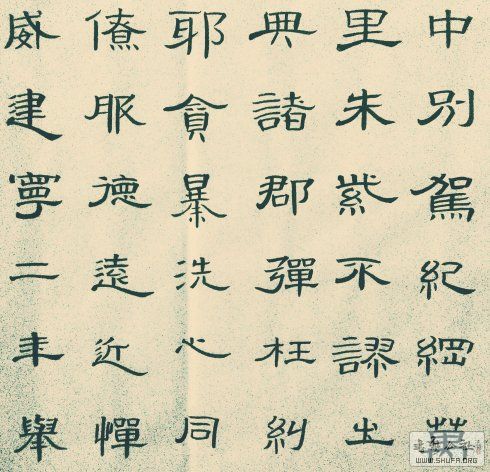 中別駕紀綱萬
里朱紫不謬出
典諸郡彈枉糾
耶貪暴洗心同
僚服德遠近憚
威建寧二年舉
WWW.SHUFA.ORG